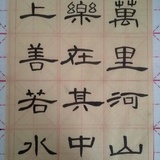 萬里河山
樂在其中
上善若水